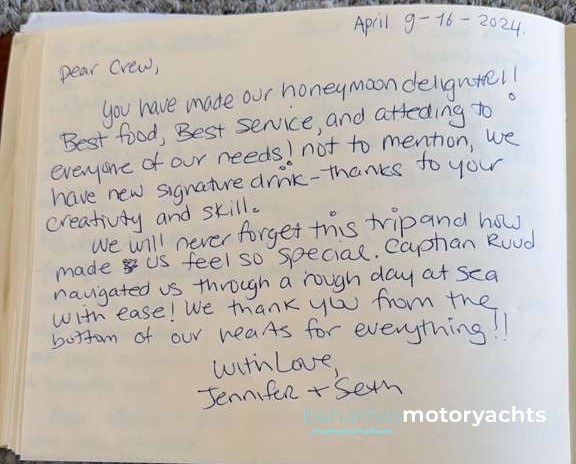 April 9-16-2024.
Dear Crew,
You have made our honeymoon delightful!
Best food, Best Service, and atteding to
everyone of our needs! not to mention, we
have new signature drink - thanks to your
creativity and skill.
We will never forget this trip and how
made us feel so special. Capthan Ruud
navigated us through a rough day at sea
with ease! We thank you from the
bottom of our hearts for everything!!
With Love,
Jennifer + Seth
motoryachts